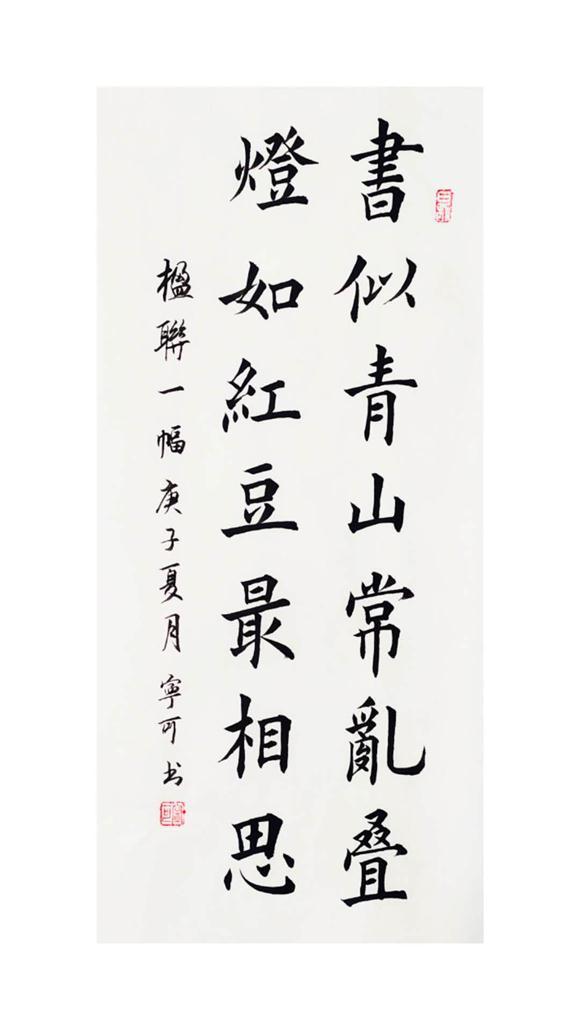 書似青山常亂叠
燈如紅豆最相思
楹聯一幅庚子夏月寧可书